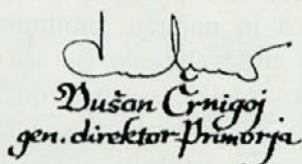 Dušan Črnigoj
gen. direktor Primorja